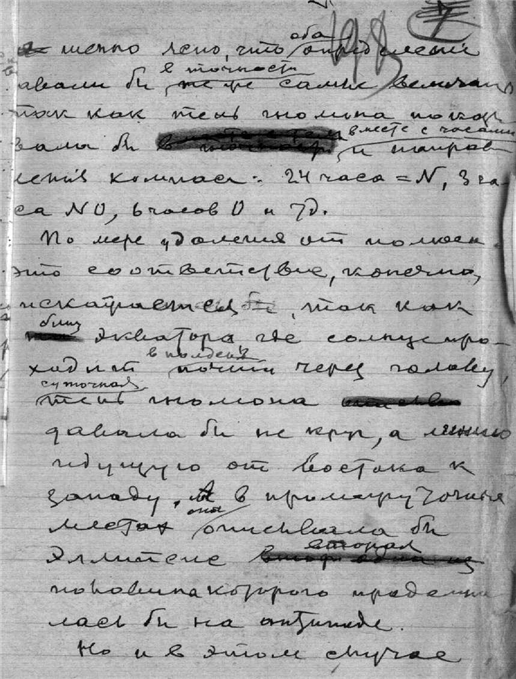 198 7
менно ясно, что оба определения
давали бы в точности те же самые величины
так как тень гномона пока
зала бы вместе с часами и направ
ления компаса: 24 часа = N, 3 ча
са NO, 6 часов O и т.д.
По мере удаления от полюса
это соответствие, конечно,
искажается, так как
близ экватора где солнце про-
ходит в полдень почти через голову,
суточная тень гномона
давала бы не круг, а линию
идущую от востока к
западу. А в промежуточных
местах она описывала бы
эллипсис вторая
половина которого продели
лась бы на антиподе.
Но и в этом случае